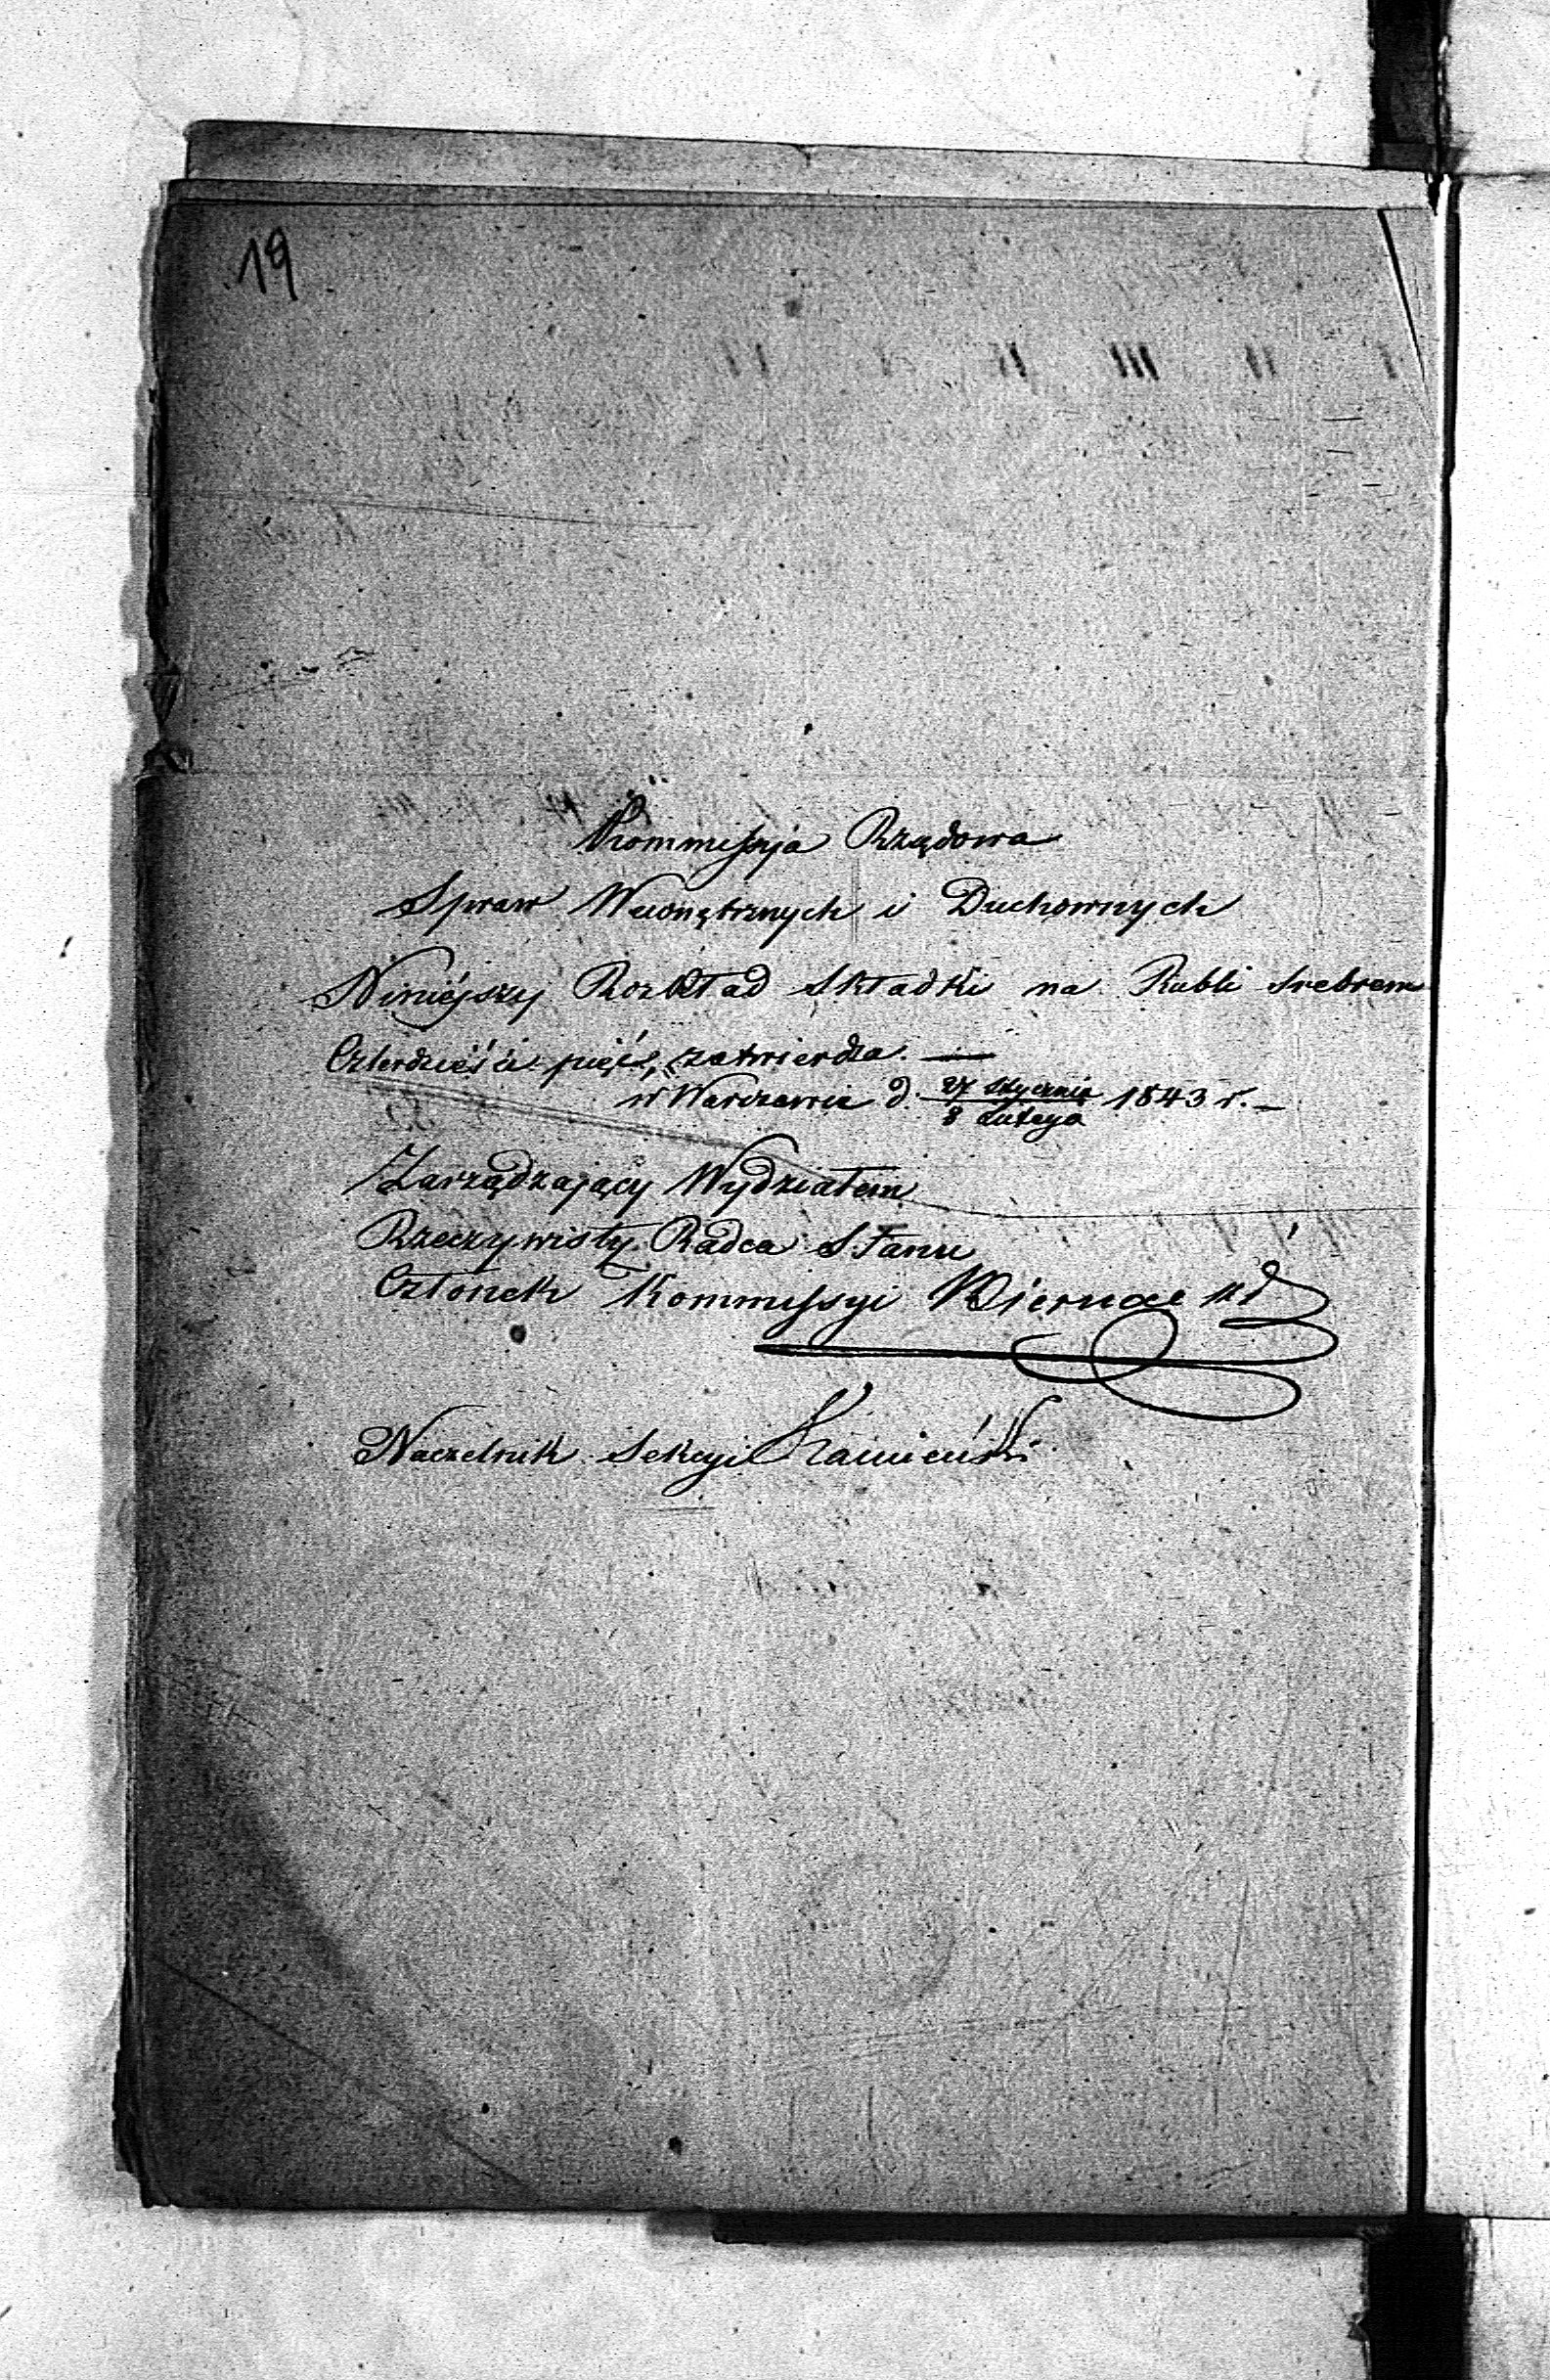 19
Kommissyja Rządowa
Spraw Wewnętrznych i Duchownych
Niniejszy Rozkład składki na Rubli srebrem
Czterdzieści pięć, zatwierdza. —
w Warszawie d. 27 Stycznia / 8 Lutego 1843 r. —
Zarządzający Wydziałem
Rzeczywisty Radca Stanu
Członek Kommissyi Biernacki
Naczelnik Sekcyi Kamieński